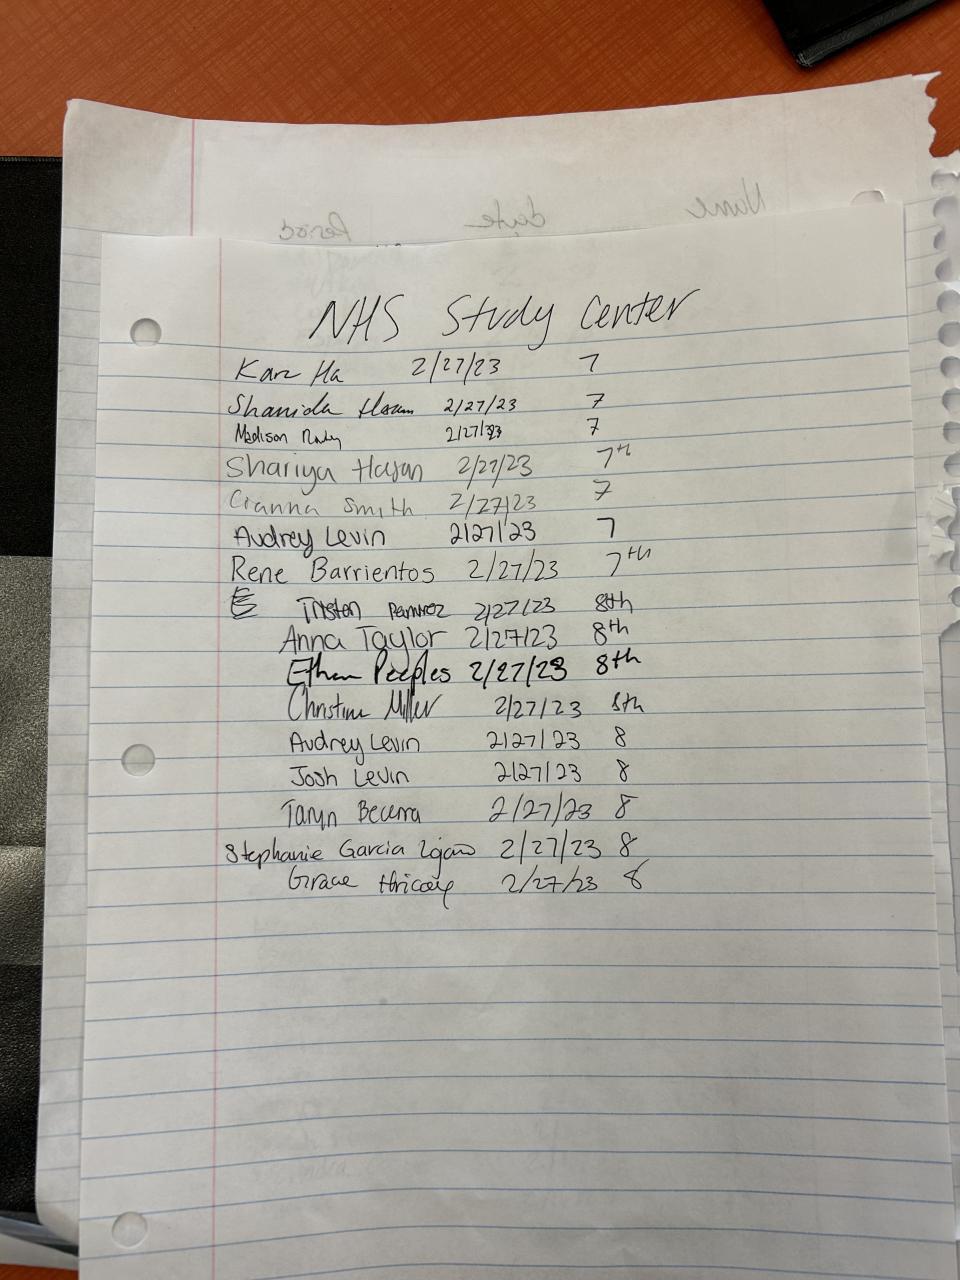 Name date Period
NHS Study Center
Kara Ha 2/27/23 7
Shanida 2/27/23 7
Madison 2/27/23 7
Shariya Hasan 2/27/23 7th
Cianna Smith 2/27/23 7
Audrey Levin 2/27/23 7
Rene Barrientos 2/27/23 7th
Tristen Ramirez 2/27/23 8th
Anna Taylor 2/27/23 8th
Ethan Peeples 2/27/23 8th
Christine Miller 2/27/23 8th
Audrey Levin 2/27/23 8
Josh Levin 2/27/23 8
Taryn Becerra 2/27/23 8
Stephanie Garcia Lojano 2/27/23 8
Grace 2/27/23 8